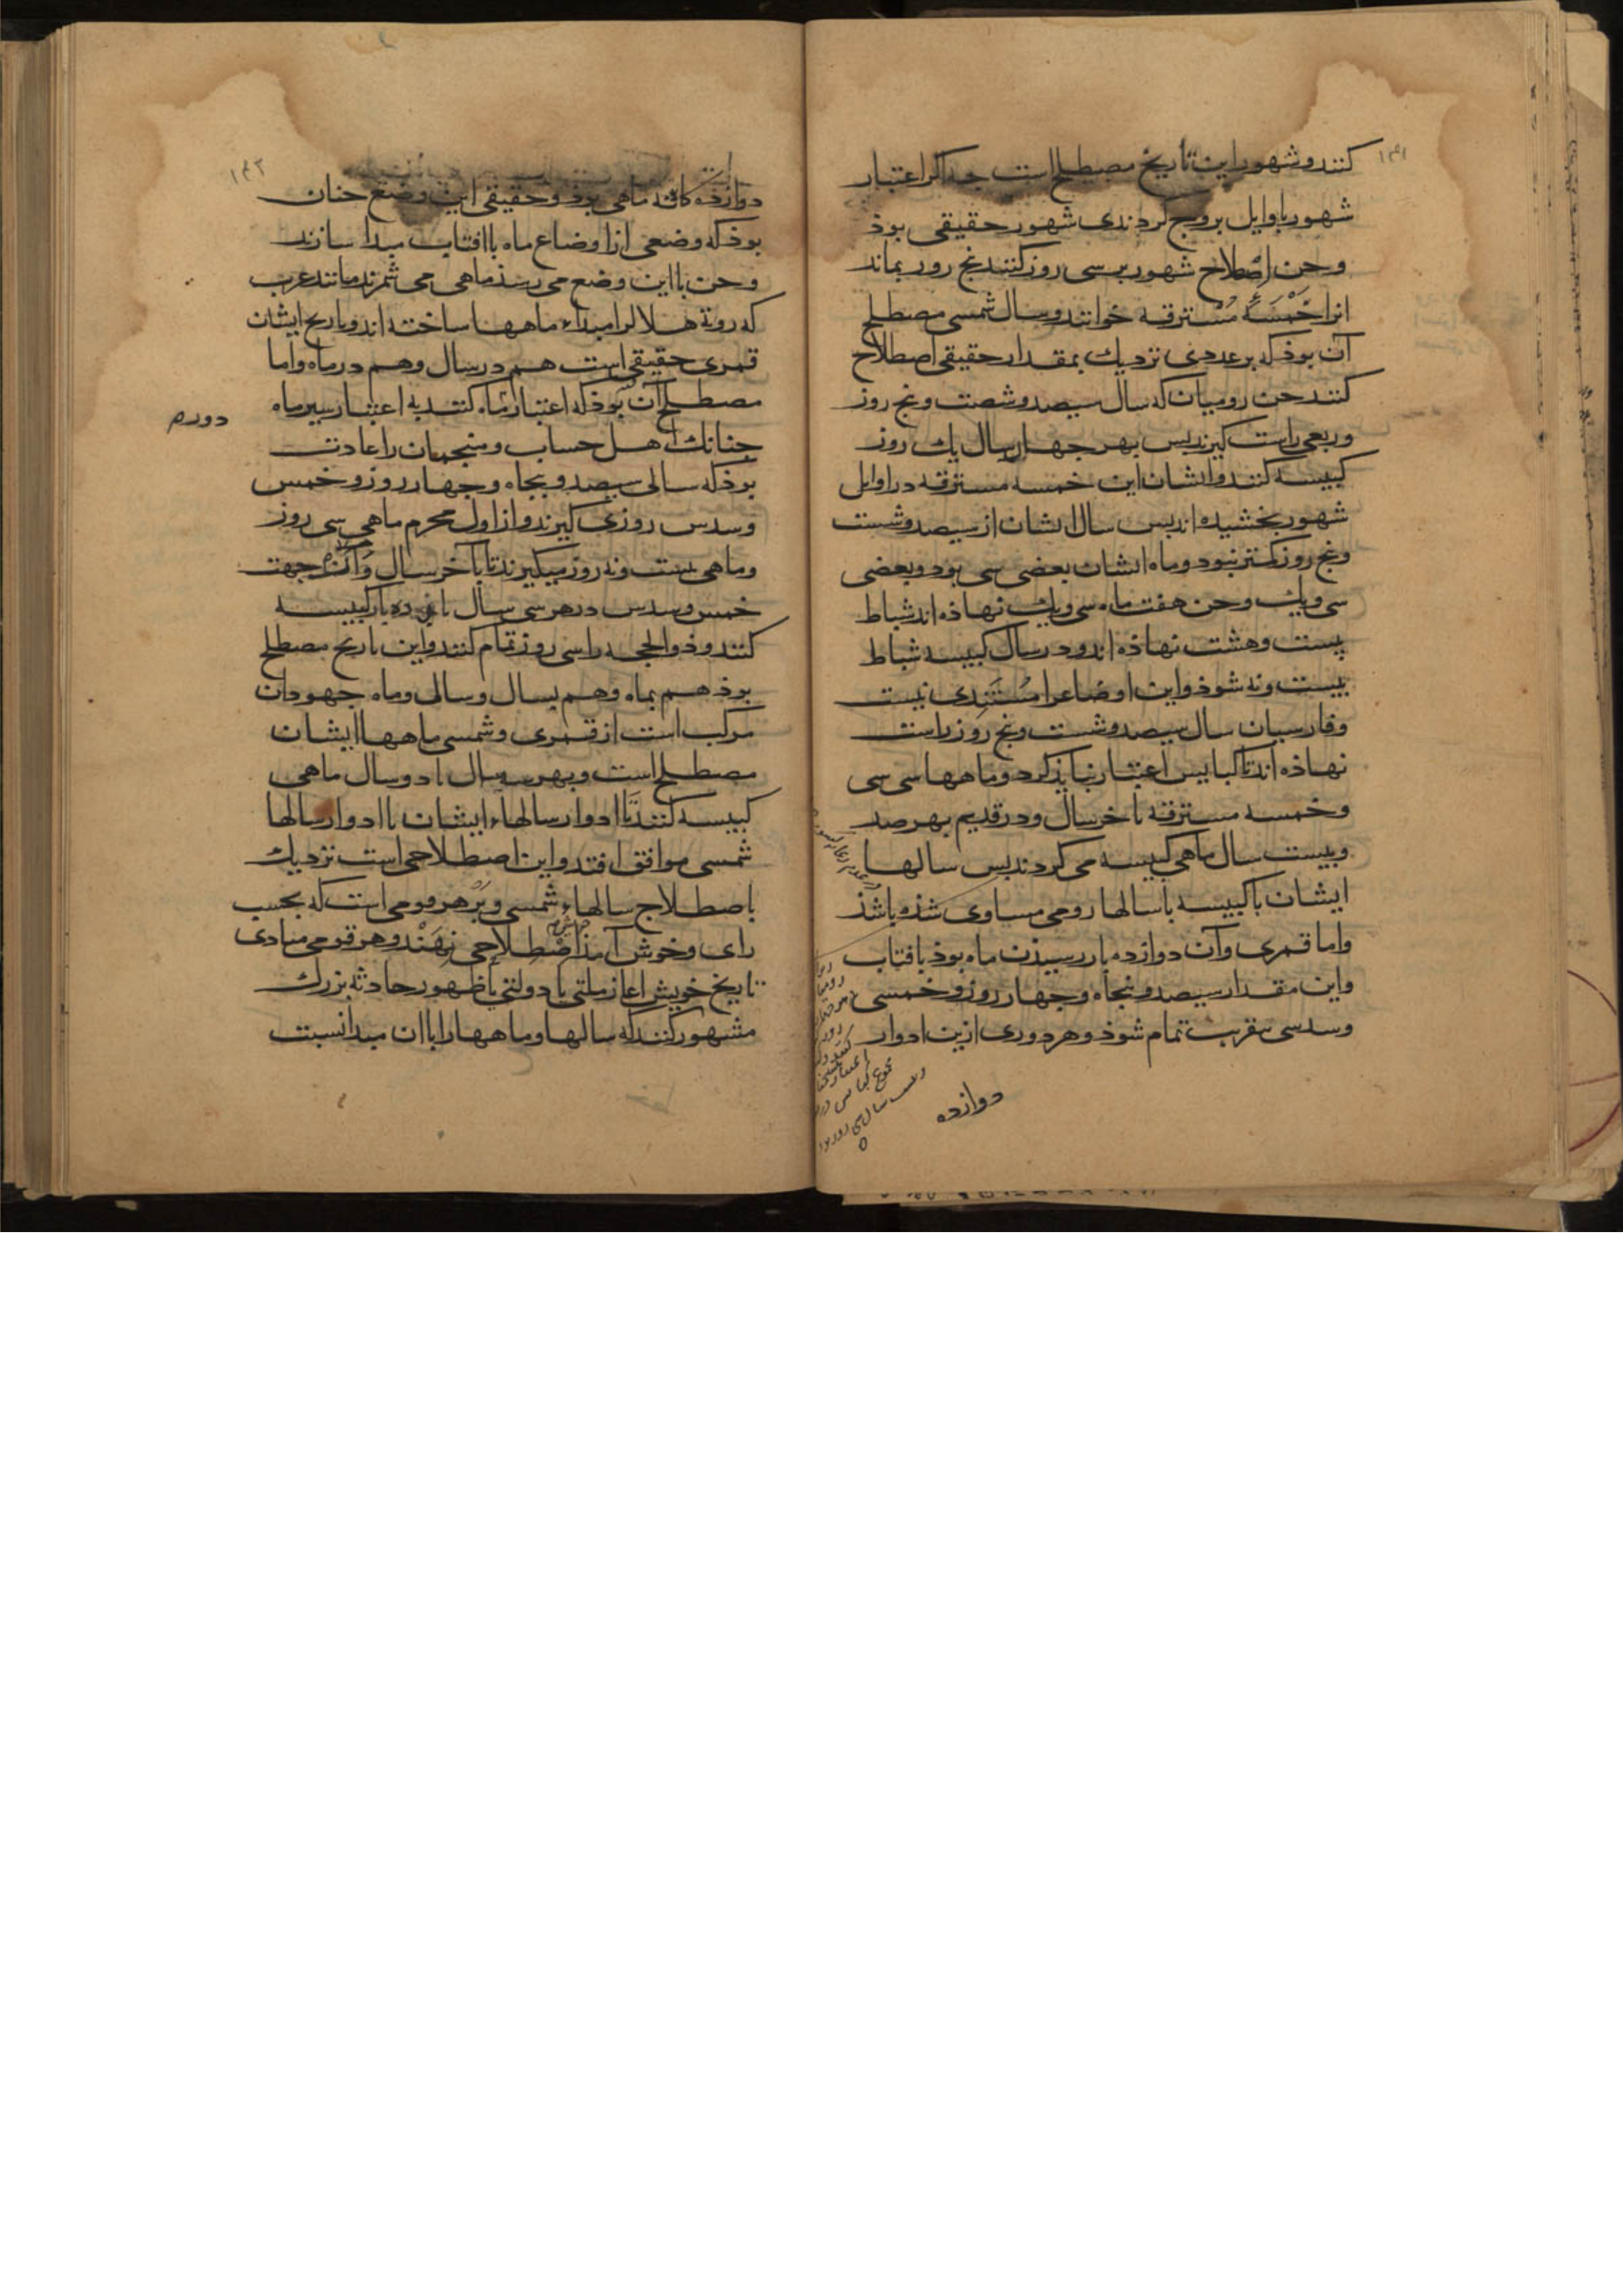 ۱۴۱
کنند و شهور این تاریخ مصطلح است جه اکر اعتبار
شهور باوایل بروج کردندی شهور حقیقی بوذ
وجن اصطلاح شهور بر سی روز کنند بنج روز بماند
انرا خَمْسَهٔ مُسْترقه خوانند و سال شمسی مصطلح
آن بوذ که بر عددی نزدیك بمقدار حقیقی اصطلاح
کنند جن رومیان که سال سیصد و شصت و بنج روز
وربعی راست کیرند بس بهر جهار سال یك روز
کبیسه کنند و ایشان این خمسه مسترقه در اوایل
شهور بخشیده اند بس سال ایشان از سیصد و شست
و بنج روز کمتر نبود و ماه ایشان بعضی سی بود و بعضی
سی و یك و جن هفت ماه سی و یك نهاذه اند شباط
بیست وهشت نهاذه اند و در سال کبیسه شباط
بیست ونه شوذ و این اوضاع را مُسْتَنِدی نیست
وفارسیان سال سیصد و شست و بنج روز راست
نهاذه اند تا کبایس اعتبار نبایذ کرد و ماهها سی سی
وخمسه مسترقه باخر سال و در قدیم بهر صد
وبیست سال ماهی کبیسه می کردند بس سالها
ایشان با کبیسه با سالها رومی مساوی شذه باشذ
واما قمری و آن دوازده بار رسیذن ماه بوذ بافتاب
واین مقدار سیصد و بنجاه و جهار روز و خمسی
وسدسی بتقریب تمام شوذ و هر دوری ازین ادوار
دوازده
۱۴۲
دوازده کانه ماهی بوذ و حقیقی این وضع جنان
بوذ که وضعی از اوضاع ماه با افتاب مبدا سازند
وجن با این وضع می رسذ ماهی می شمرند مانند عرب
که رویة هلال را مبداء ماهها ساخته اند و تاریخ ایشان
قمری حقیقی است هم در سال وهم در ماه واما
مصطلح آن بوذ که اعتبار ماه کنند به اعتبار سیر ماه
دوره
جنانك اهل حساب و منجمان را عادت
بوذ که سالی سیصد و بنجاه و جهار روز و خمس
وسدس روزی کیرند و از اول محرم ماهی سی روز
وماهی بیست ونه روز میکیرند تا باخر سال و از جهت
خمس و سدس در هر سی سال یازده بار کبیسه
کنند و ذوالحجه را سی روز تمام کنند و این تاریخ مصطلح
بوذ هم بماه وهم بسال و سال و ماه جهودان
مرکب است از قمری و شمسی ماهها ایشان
مصطلح است و بهر سه سال یا دو سال ماهی
کبیسه کنند تا ادوار سالهاء ایشان با ادوار سالها
شمسی موافق افتد و این اصطلاحی است نزدیك
باصطلاح سالهاء شمسی وبَرْ هر قومی است که بحسب
رای و خوش آمذ اصْطلاحی نِهَنْد و هر قومی مبادی
تاریخ خویش اغاز ملتی یا دولتی یا ظهور حادثه بزرك
مشهور کنند که سالها و ماهها را با ان مبدا نسبت